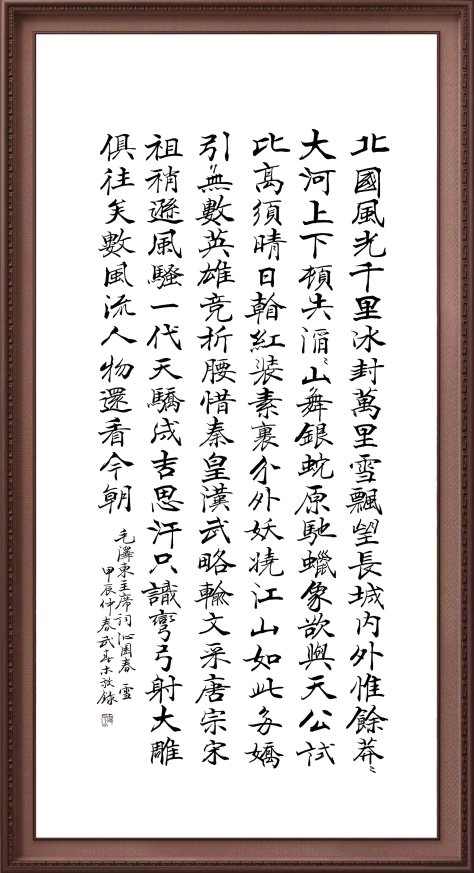 北國風光千里冰封萬里雪飄望長城内外惟餘莽〻
大河上下頓失滔〻山舞銀蛇原馳蠟象欲與天公試
比高須晴日看紅裝素裹分外妖嬈江山如此多嬌
引無數英雄竞折腰惜秦皇漢武略輸文采唐宗宋
祖稍遜風騷一代天驕成吉思汗只識彎弓射大雕
俱往矣數風流人物還看今朝
毛澤東主席詞沁園春 雪
甲辰仲春武敬錄